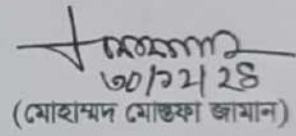 ৩০/১২/২৪
(মোহাম্মদ মোস্তফা জামান)